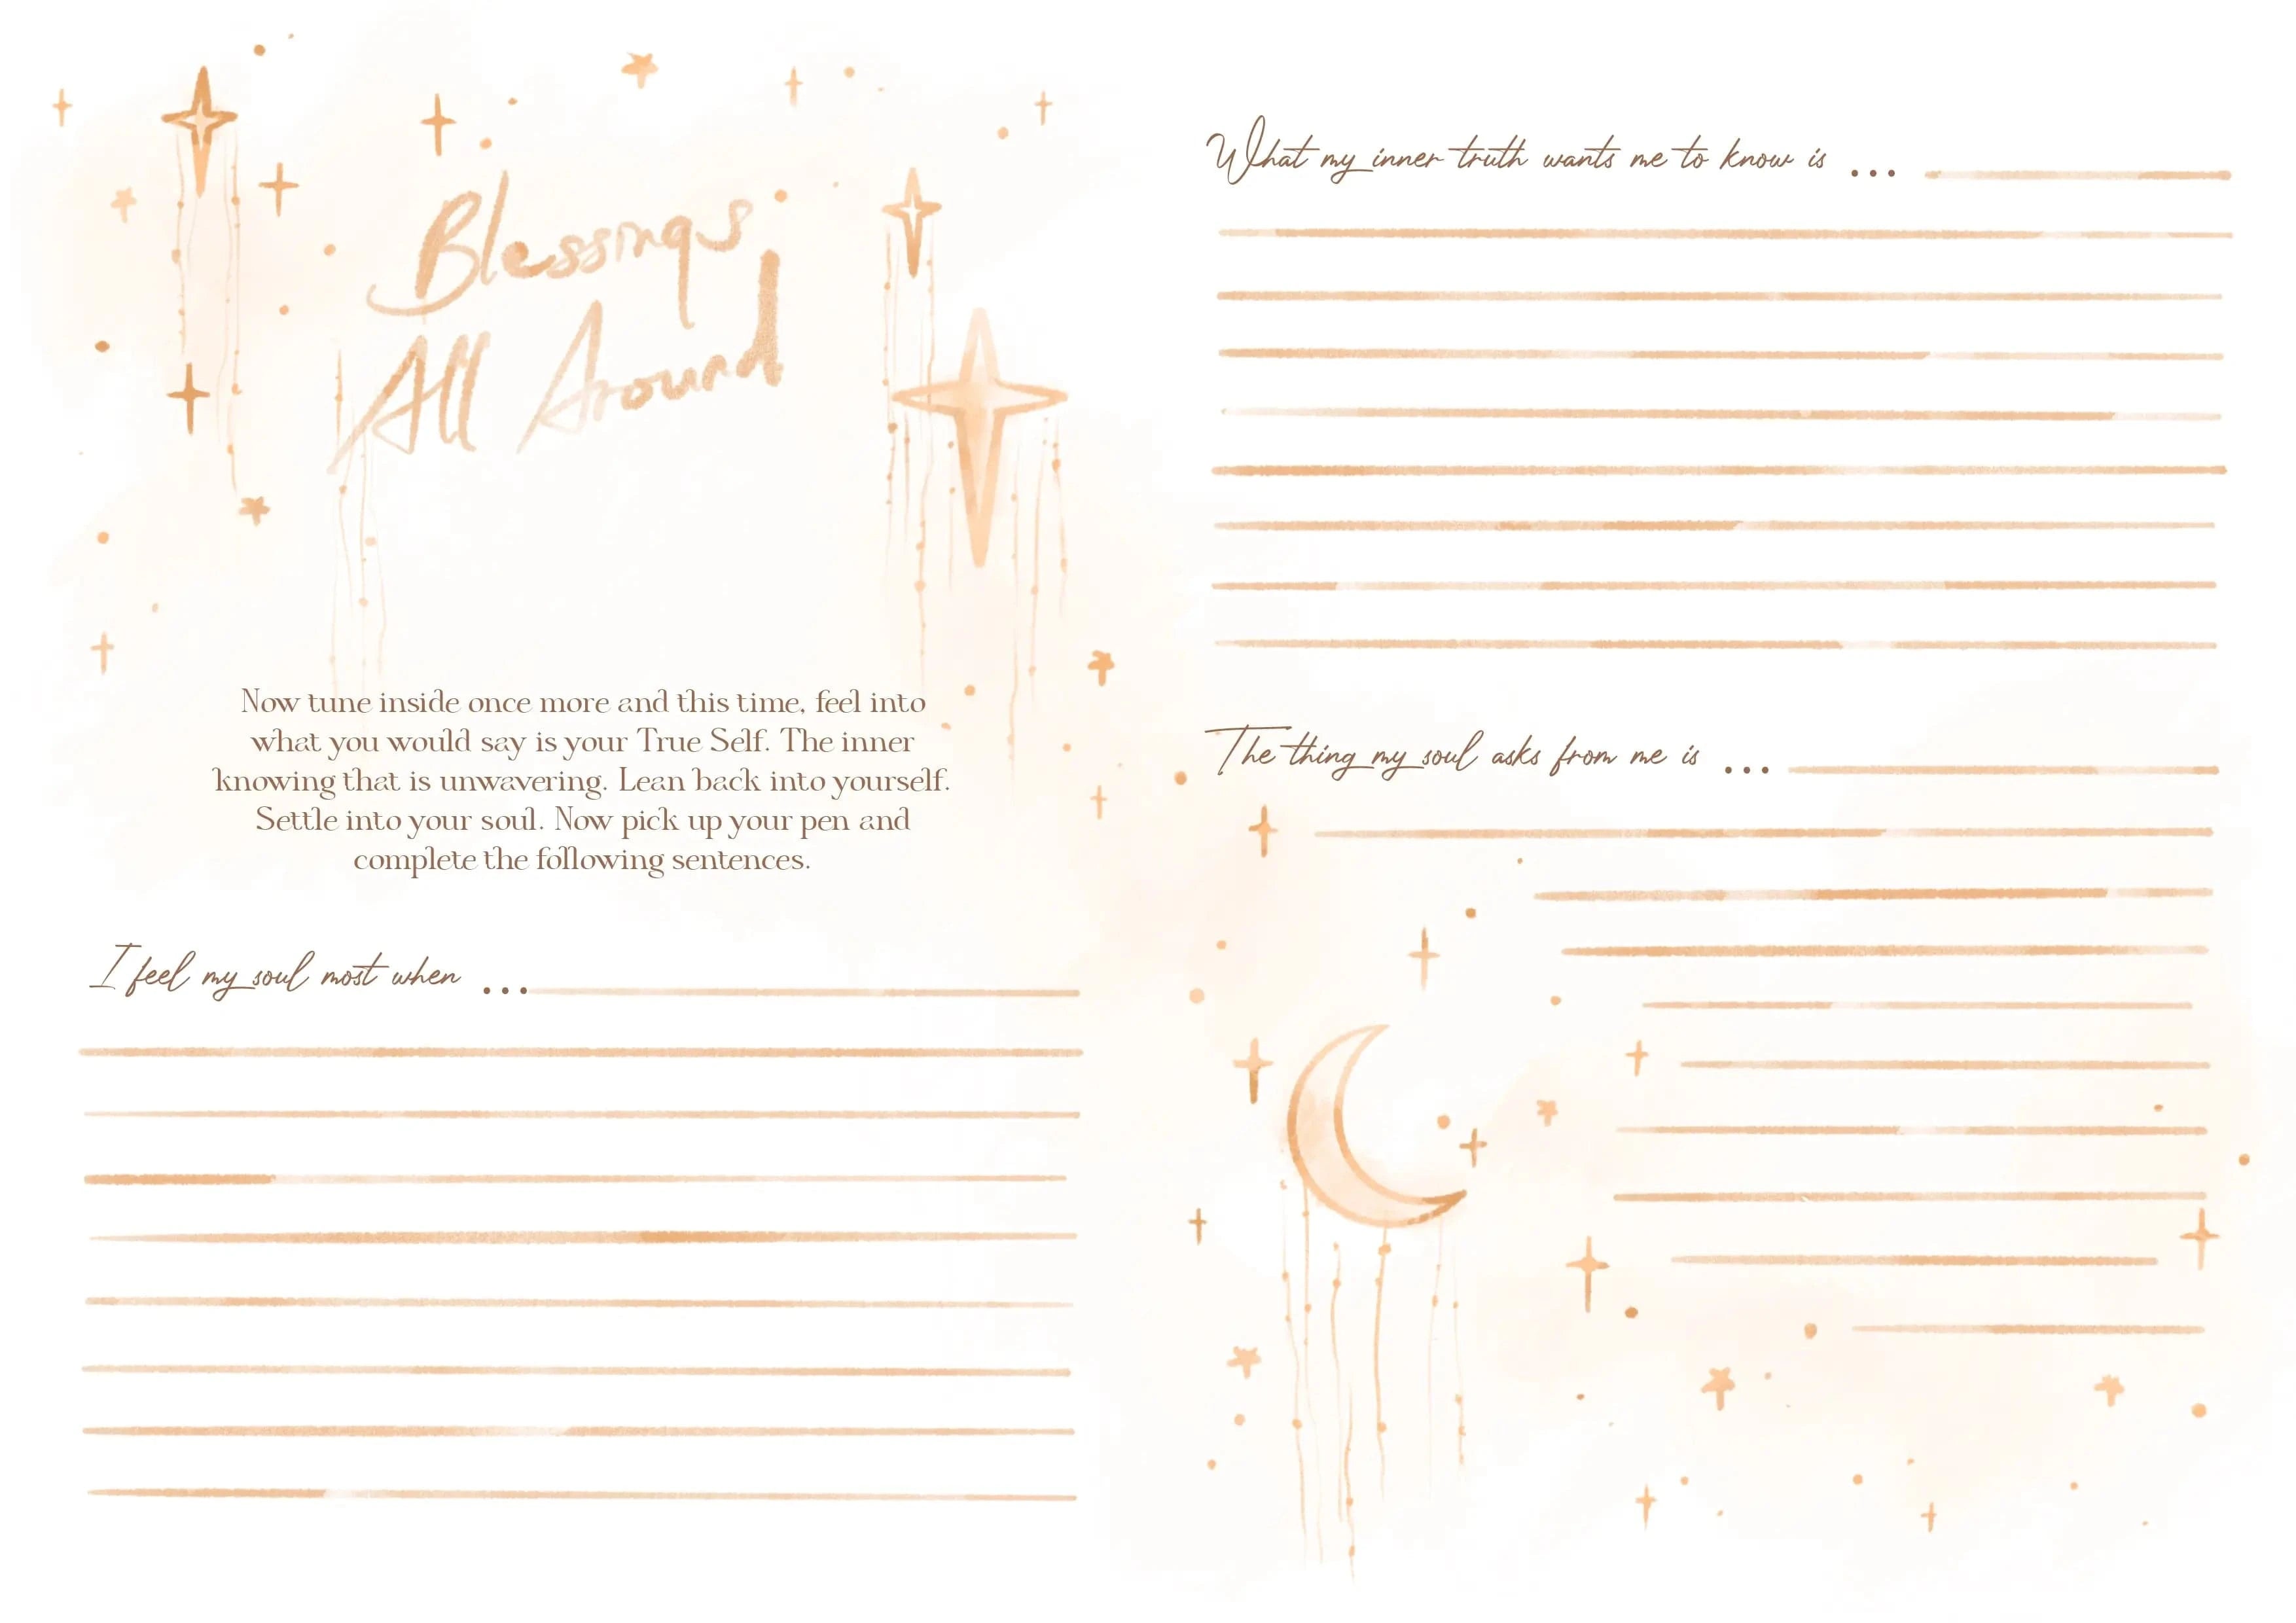 Blessings
All Around
Now tune inside once more and this time, feel into
what you would say is your True Self. The inner
knowing that is unwavering. Lean back into yourself.
Settle into your soul. Now pick up your pen and
complete the following sentences.
I feel my soul most when ...
What my inner truth wants me to know is ...
The thing my soul asks from me is ...